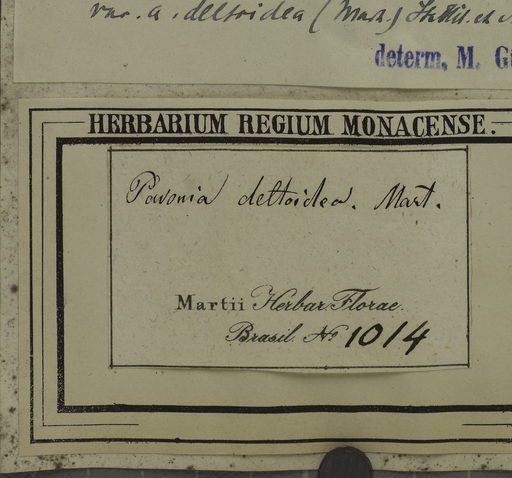 var. α. deltoidea (Mart.)
determ. M. G
HERBARIUM REGIUM MONACENSE.
Pavonia deltoidea. Mart.
Martii Herbar. Florae
Brasil. No 1014